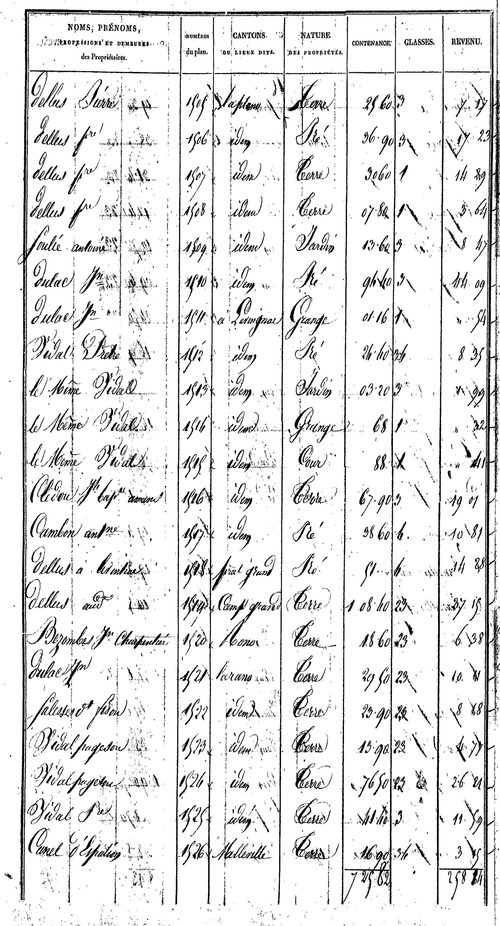 NOMS, PRÉNOMS, PROFESSIONS ET DEMEURES des Propriétaires. NUMÉROS du plan. CANTONS OU LIEUX DITS. NATURE DES PROPRIÉTÉS. CONTENANCE. CLASSES. REVENU.
dellus Pierre 1505 Laplane Terre 25 60 3 7 17
dellus pre 1506 idem Pré 36 90 3 17 23
dellus pre 1507 idem Terre 30 60 1 14 89
dellus pre 1508 idem Terre 07 80 1 3 64
foulié antoine 1509 idem Jardin 13 60 3 8 47
dulac Jn 1510 idem Pré 94 40 3 44 09
dulac Jn 1511 a Grange 01 16 1 54
Vidal 1512 idem Pré 24 40 34 8 35
le Même Vidal 1513 idem Jardin 03 20 3 1 99
le Même Vidal 1514 idem Grange 68 1 32
le Même Vidal 1515 idem Cour 88 1 41
1516 idem Terre 67 90 3 19 01
Cambon antne 1517 idem Pré 38 60 4 10 81
dellus a 1518 prat grand Pré 51 4 14 28
dellus aud 1519 Camp grand Terre 1 08 40 23 37 15
Bezombes Jn Charpentier 1520 Terre 18 60 23 6 38
dulac Jn 1521 Terre 29 50 23 10 11
1522 idem Terre 23 90 23 8 18
Vidal pageson 1523 idem Terre 13 90 23 4 77
Vidal pageson 1524 idem Terre 76 50 23 26 21
Vidal Pre 1525 idem Terre 41 40 3 11 59
Canel d'Espalion 1526 Malleville Terre 16 90 34 3 15
7 25 62 258 84